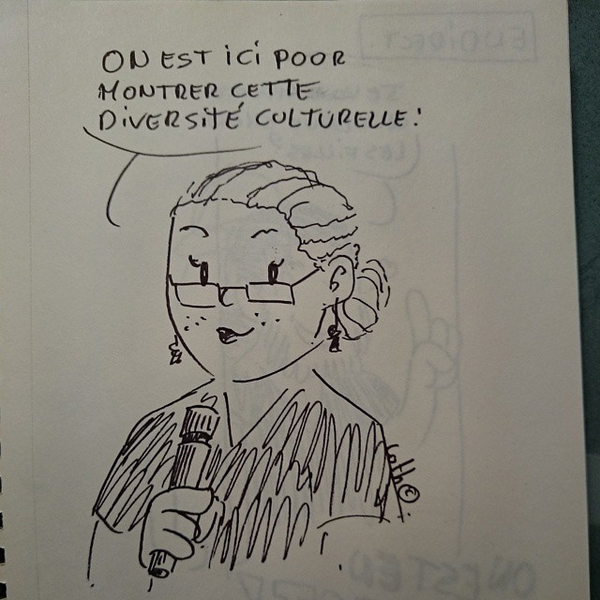 ON EST ICI POOR
MONTRER CETTE
DIVERSITÉ CULTURELLE!